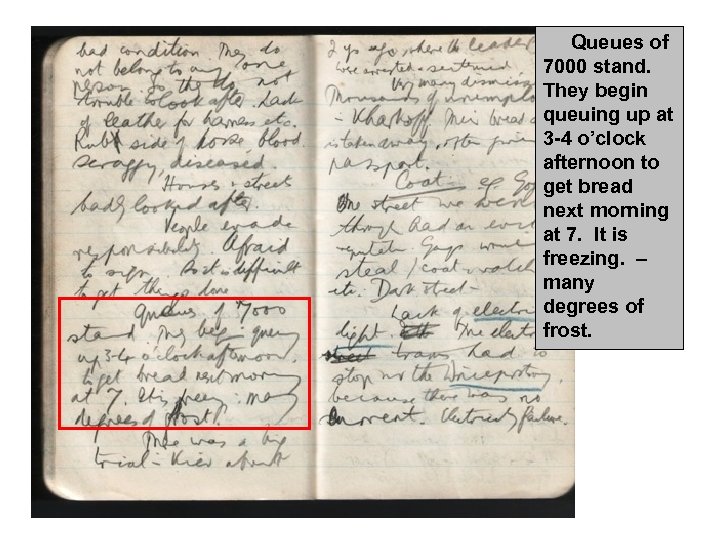 bad condition. They do
not belong to any one
person so they do not
trouble to look after. Lack
of leather for harness etc.
Rub side of horse, blood.
Scraggy, diseased.
Houses & street
badly looked after.
People evade
responsibility. Afraid
to sign. So it is difficult
to get things done
Queues of 7000
stand. They begin queuing
up 3-4 o'clock afternoon,
to get bread next morning
at 7. It is freezing. many
degrees of frost.
There was a big
trial - Kiev about
2 yrs ago, where the leader
were arrested & sentenced.
Very many dismiss
Thousands of unemplo
- Kharkoff. Their bread
is taken away, often
passport.
Coat. eg
One street we were
though had an evil
reputat. Gangs would
steal / coat - watch
etc. Dark street -
Lack of electric
light. The electric
street trams had to
stop nr the
because there was no
current. Electricity failure.
Queues of
7000 stand.
They begin
queuing up at
3-4 o’clock
afternoon to
get bread
next morning
at 7. It is
freezing. –
many
degrees of
frost.